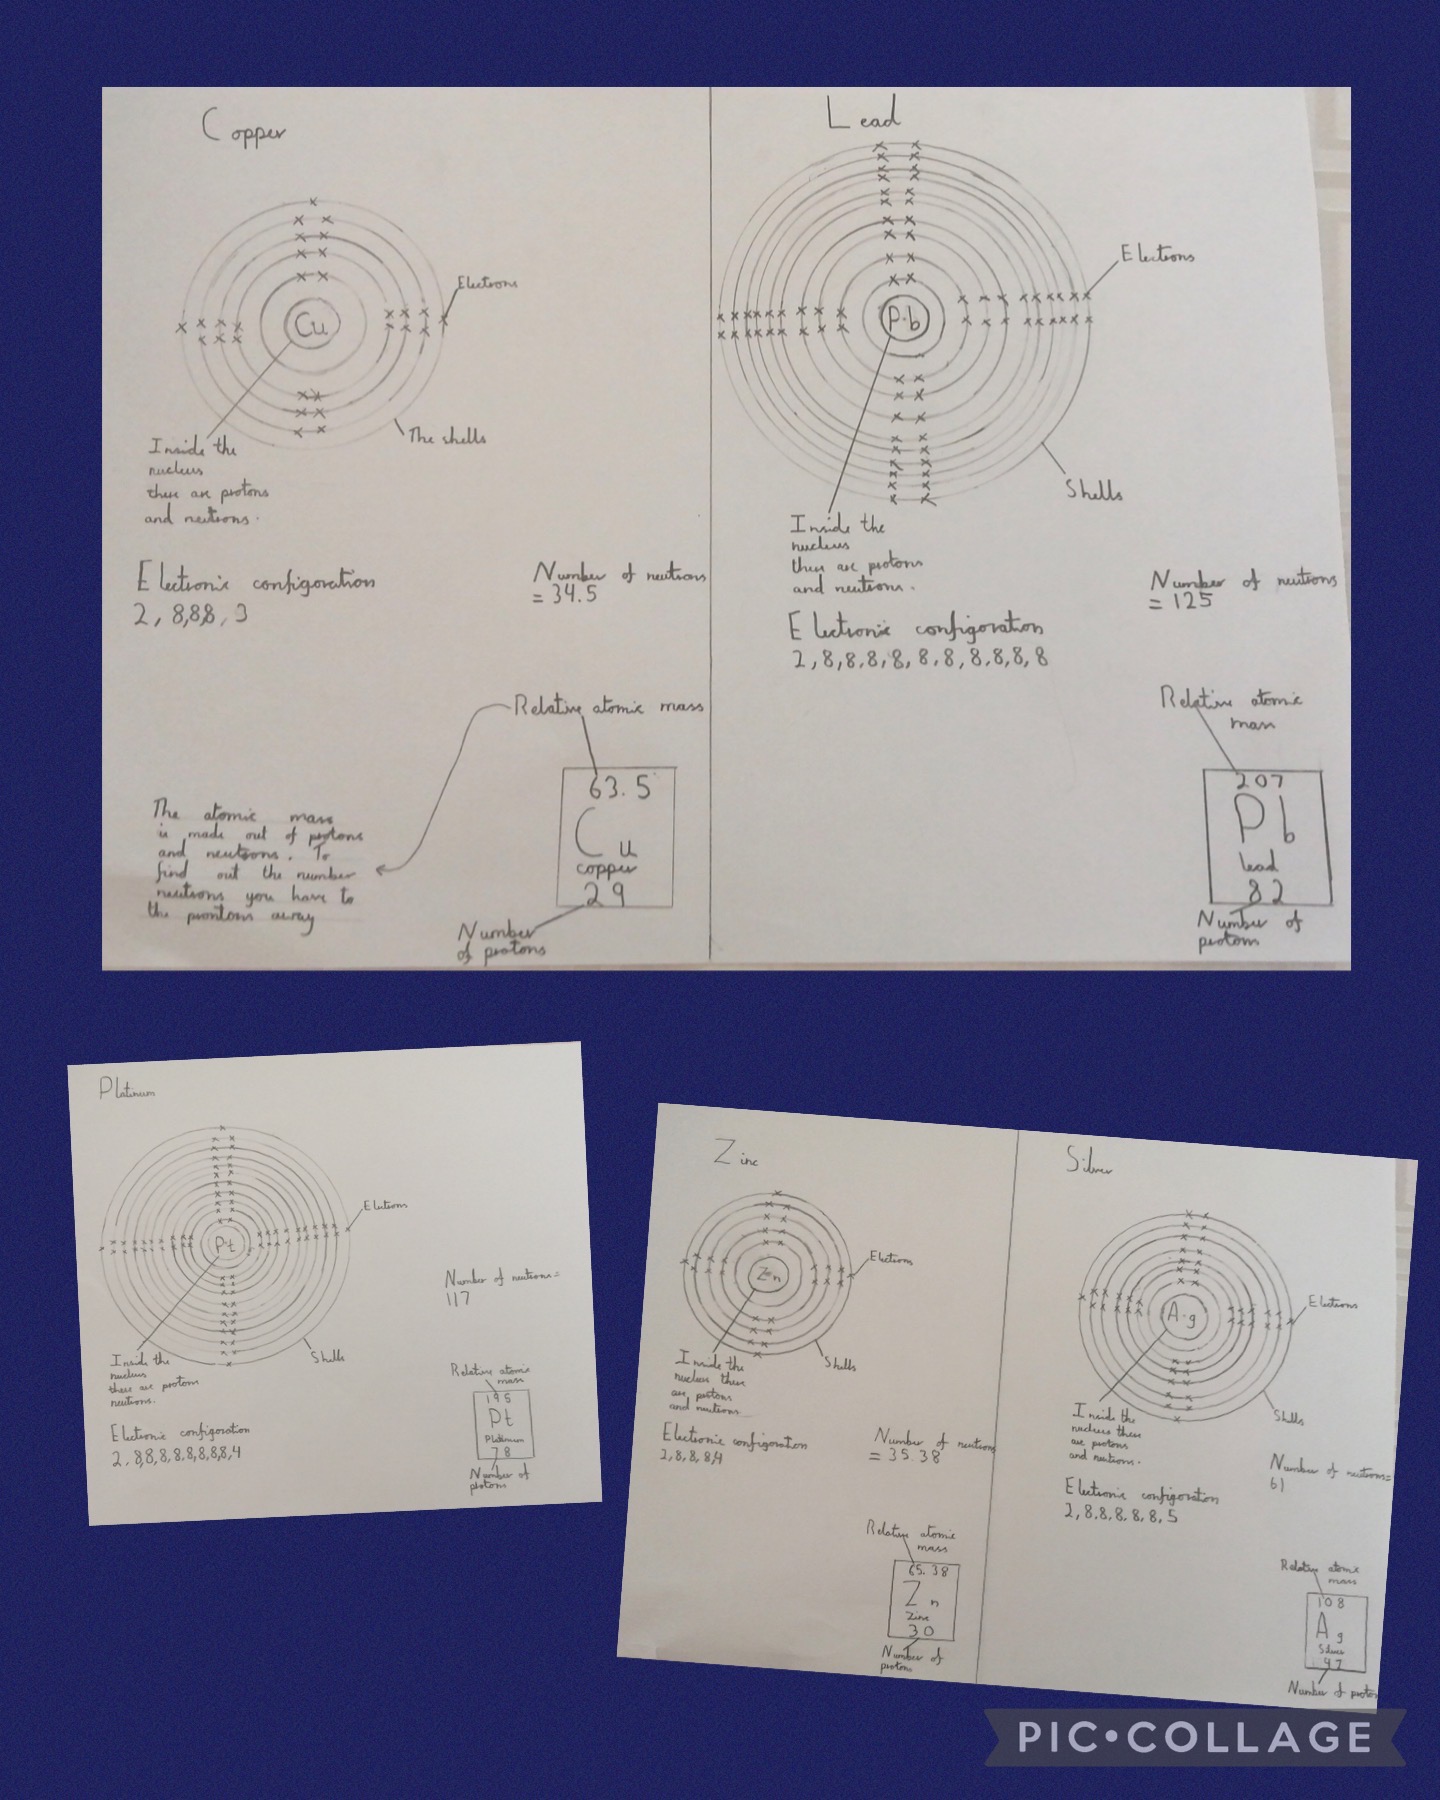 Copper
Cu
Electrons
The shells
Inside the
nucleus
there are protons
and neutrons.
Electronic configoration
2, 8,8,8, 3
Number of neutrons
= 34.5
Relative atomic mass
63.5
Cu
copper
29
Number
of protons
The atomic mass
is made out of protons
and neutrons. To
find out the number
neutrons you have to
the prontons away
Lead
Pb
Electrons
Shells
Inside the
nucleus
there are protons
and neutrons.
Electronic configoration
2,8,8,8,8,8,8,8,8,8,8
Number of neutrons
= 125
Relative atomic
mass
207
Pb
lead
82
Number of
protons
Platinum
Pt
Electrons
Shells
Inside the
nucleus
there are protons
neutrons.
Electronic configoration
Number of neutrons=
117
Relative atomic
mass
195
Pt
Platinum
78
Number of
protons
Zinc
Zn
Electrons
Shells
Inside the
nucleus there
are protons
and neutrons
Electronic configoration
2,8,8,8,4
Number of neutrons
= 35.38
Relative atomic
mass
65.38
Zn
Zinc
30
Number of
protons
Silver
Ag
Electrons
Shells
Inside the
nucleus there
are protons
and neutrons.
Electronic configoration
2,8,8,8,8,8,5
Number of neutrons=
61
Relative atomic
mass
108
Ag
Silver
47
Number of protons
PIC•COLLAGE